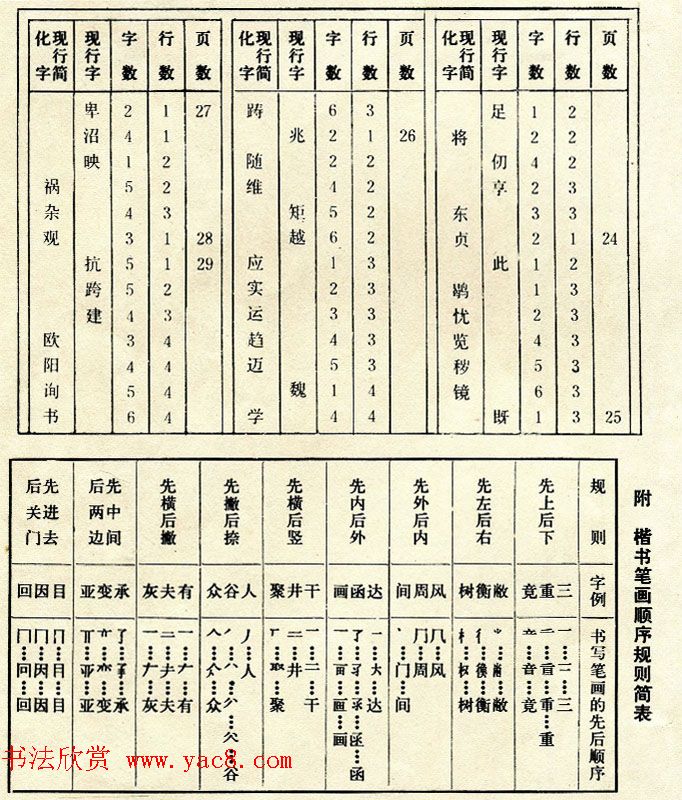 现行简化字 现行字 字数 行数 页数
足 1 2
将 2 2
仞 4 2
享 2 3
东 3 3
贞 2 1 24
此 1 2
鹖 1 3
忧 2 3
览 4 3
秽 5 3
镜 6 3
既 1 3 25
现行简化字 现行字 字数 行数 页数
踌 6 3
兆 2 1 26
随 2 2
维 4 2
矩 5 2
越 6 2
应 1 3
实 2 3
运 3 3
趋 4 3
迈 5 3
魏 1 4
学 4 4
现行简化字 现行字 字数 行数 页数
卑 2 1 27
沼 4 1
映 1 2
祸 5 2
杂 4 3
观 3 1 28
抗 5 1 29
跨 5 2
建 4 3
欧 3 4
阳 4 4
询 5 4
书 6 4
附 楷书笔画顺序规则简表
规则
字例
书写笔画的先后顺序
先上后下
三重竟
先左后右
敝衡树
先外后内
风周间
先内后外
达函画
先横后竖
干井聚
先撇后捺
人谷众
先横后撇
有夫灰
先中间后两边
承变亚
先进去后关门
目因回
书法欣赏 www.yac8.com